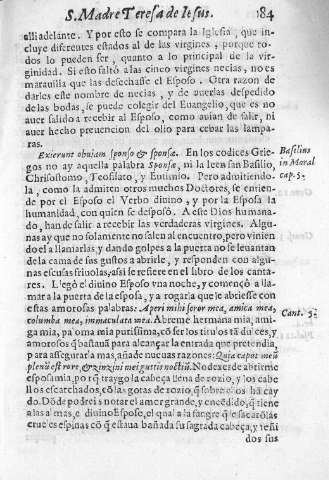 S. Madre Teresa de Iesus. 184
alli adelante. Y por esto se compara la Iglesia, que in-
cluye diferentes estados al de las virgines, porque to-
dos lo pueden ser, quanto a lo principal de la vir-
ginidad. Si esto faltó a las cinco virgines necias, no es
marauilla que las desechasse el Esposo. Otra razon de
darles este nombre de necias, y de auerlas despedido
de las bodas, se puede colegir del Euangelio, que es no
auer salido a recebir al Esposo, como auian de salir, ni
auer hecho preuencion del olio para cebar las lampa-
ras.
Exierunt obuiam sponso & sponsæ. En los codices Grie-
gos no ay aquella palabra Sponsæ, ni la leen san Basilio,
Chrisostomo, Teofilato, y Eutimio. Pero admitiendo-
la, como la admiten otros muchos Doctores, se entien-
de por el Esposo el Verbo diuino, y por la Esposa la
humanidad, con quien se desposò. A este Dios humana-
do, han de salir a recebir las verdaderas virgines. Algu-
nas ay que no solamente no salen al encuentro, pero vinien
do el a llamarlas, y dando golpes a la puerta no se leuantan
de la cama de sus gustos a abrirle, y responden con algu-
nas escusas friuolas, assi se refiere en el libro de los canta-
res. Llegò el diuino Esposo vna noche, y començò a lla-
mar a la puerta de la esposa, y a rogarla que le abriesse con
estas amorosas palabras: Aperi mihi soror mea, amica mea,
columba mea, immaculata mea. Abreme hermana mia, ami-
ga mia, paloma mia purissima, cõ ser los titulos tã dulces, y
amorosos q̃ bastauã para alcançar la entrada que pretendia,
para assegurarla mas, añade nueuas razones: Quia caput meũ
plenũ est rore, & cincinni mei guttis noctiũ. No dexes de abrirme
esposa mia, porq̃ traygo la cabeça llena de rozio, y los cabe
llos escarchados, cõ las gotas de rozio, q̃ sobre ellos hã cay
do. Dõde podreis notar el amor grande, y encẽdido, q̃ tiene
a las almas, el diuino Esposo, el qual a la sangre q̃ le sacarõ las
crueles espinas cõ q̃ estaua bañada su sagrada cabeça, y testi
dos sus
Basilius
in Moral
cap. 5.
Cant. 5.